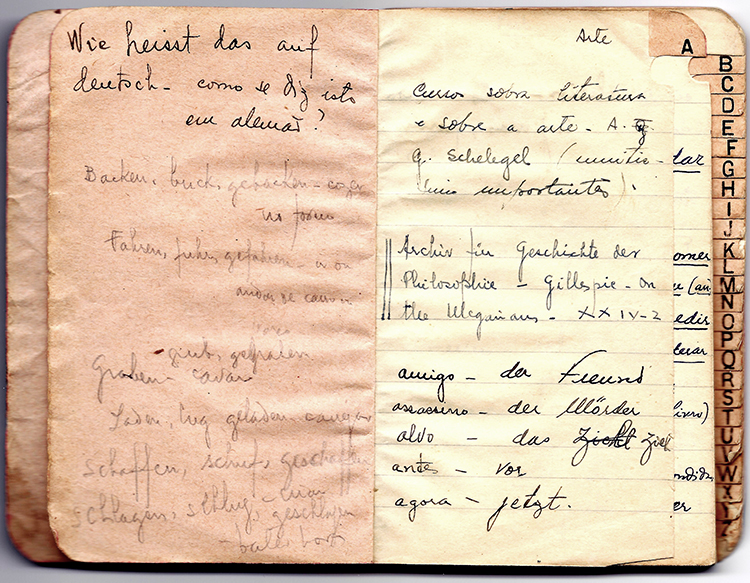 Wie heisst das auf
deutsch - como se diz isto
em alemão?
Backen, buck, gebacken - cozer
no forno
Fahren, fuhr, gefahren - ir ou
andar de carro
grub, gegraben
Graben - cavar
Laden, lug geladen - carregar
Schaffen, schuf, geschaffen
Schlagen, schlug, geschlagen
- bater
Arte
Cursos sobre literatura
e sobre a arte - A.
g. Schelegel (muitis-
simo importantes).
Archiv für Geschichte der
Philosophie - Gillespie - On
the Megarians - XXIV-2
amigo - der Freund
assassino - der Mörder
alvo - das Ziel
antes - vor
agora - jetzt.
tar
edir
terar
livro)
er
A
B
C
D
E
F
G
H
I
J
K
L
M
N
O
P
Q
R
S
T
U
V
W
X
Y
Z